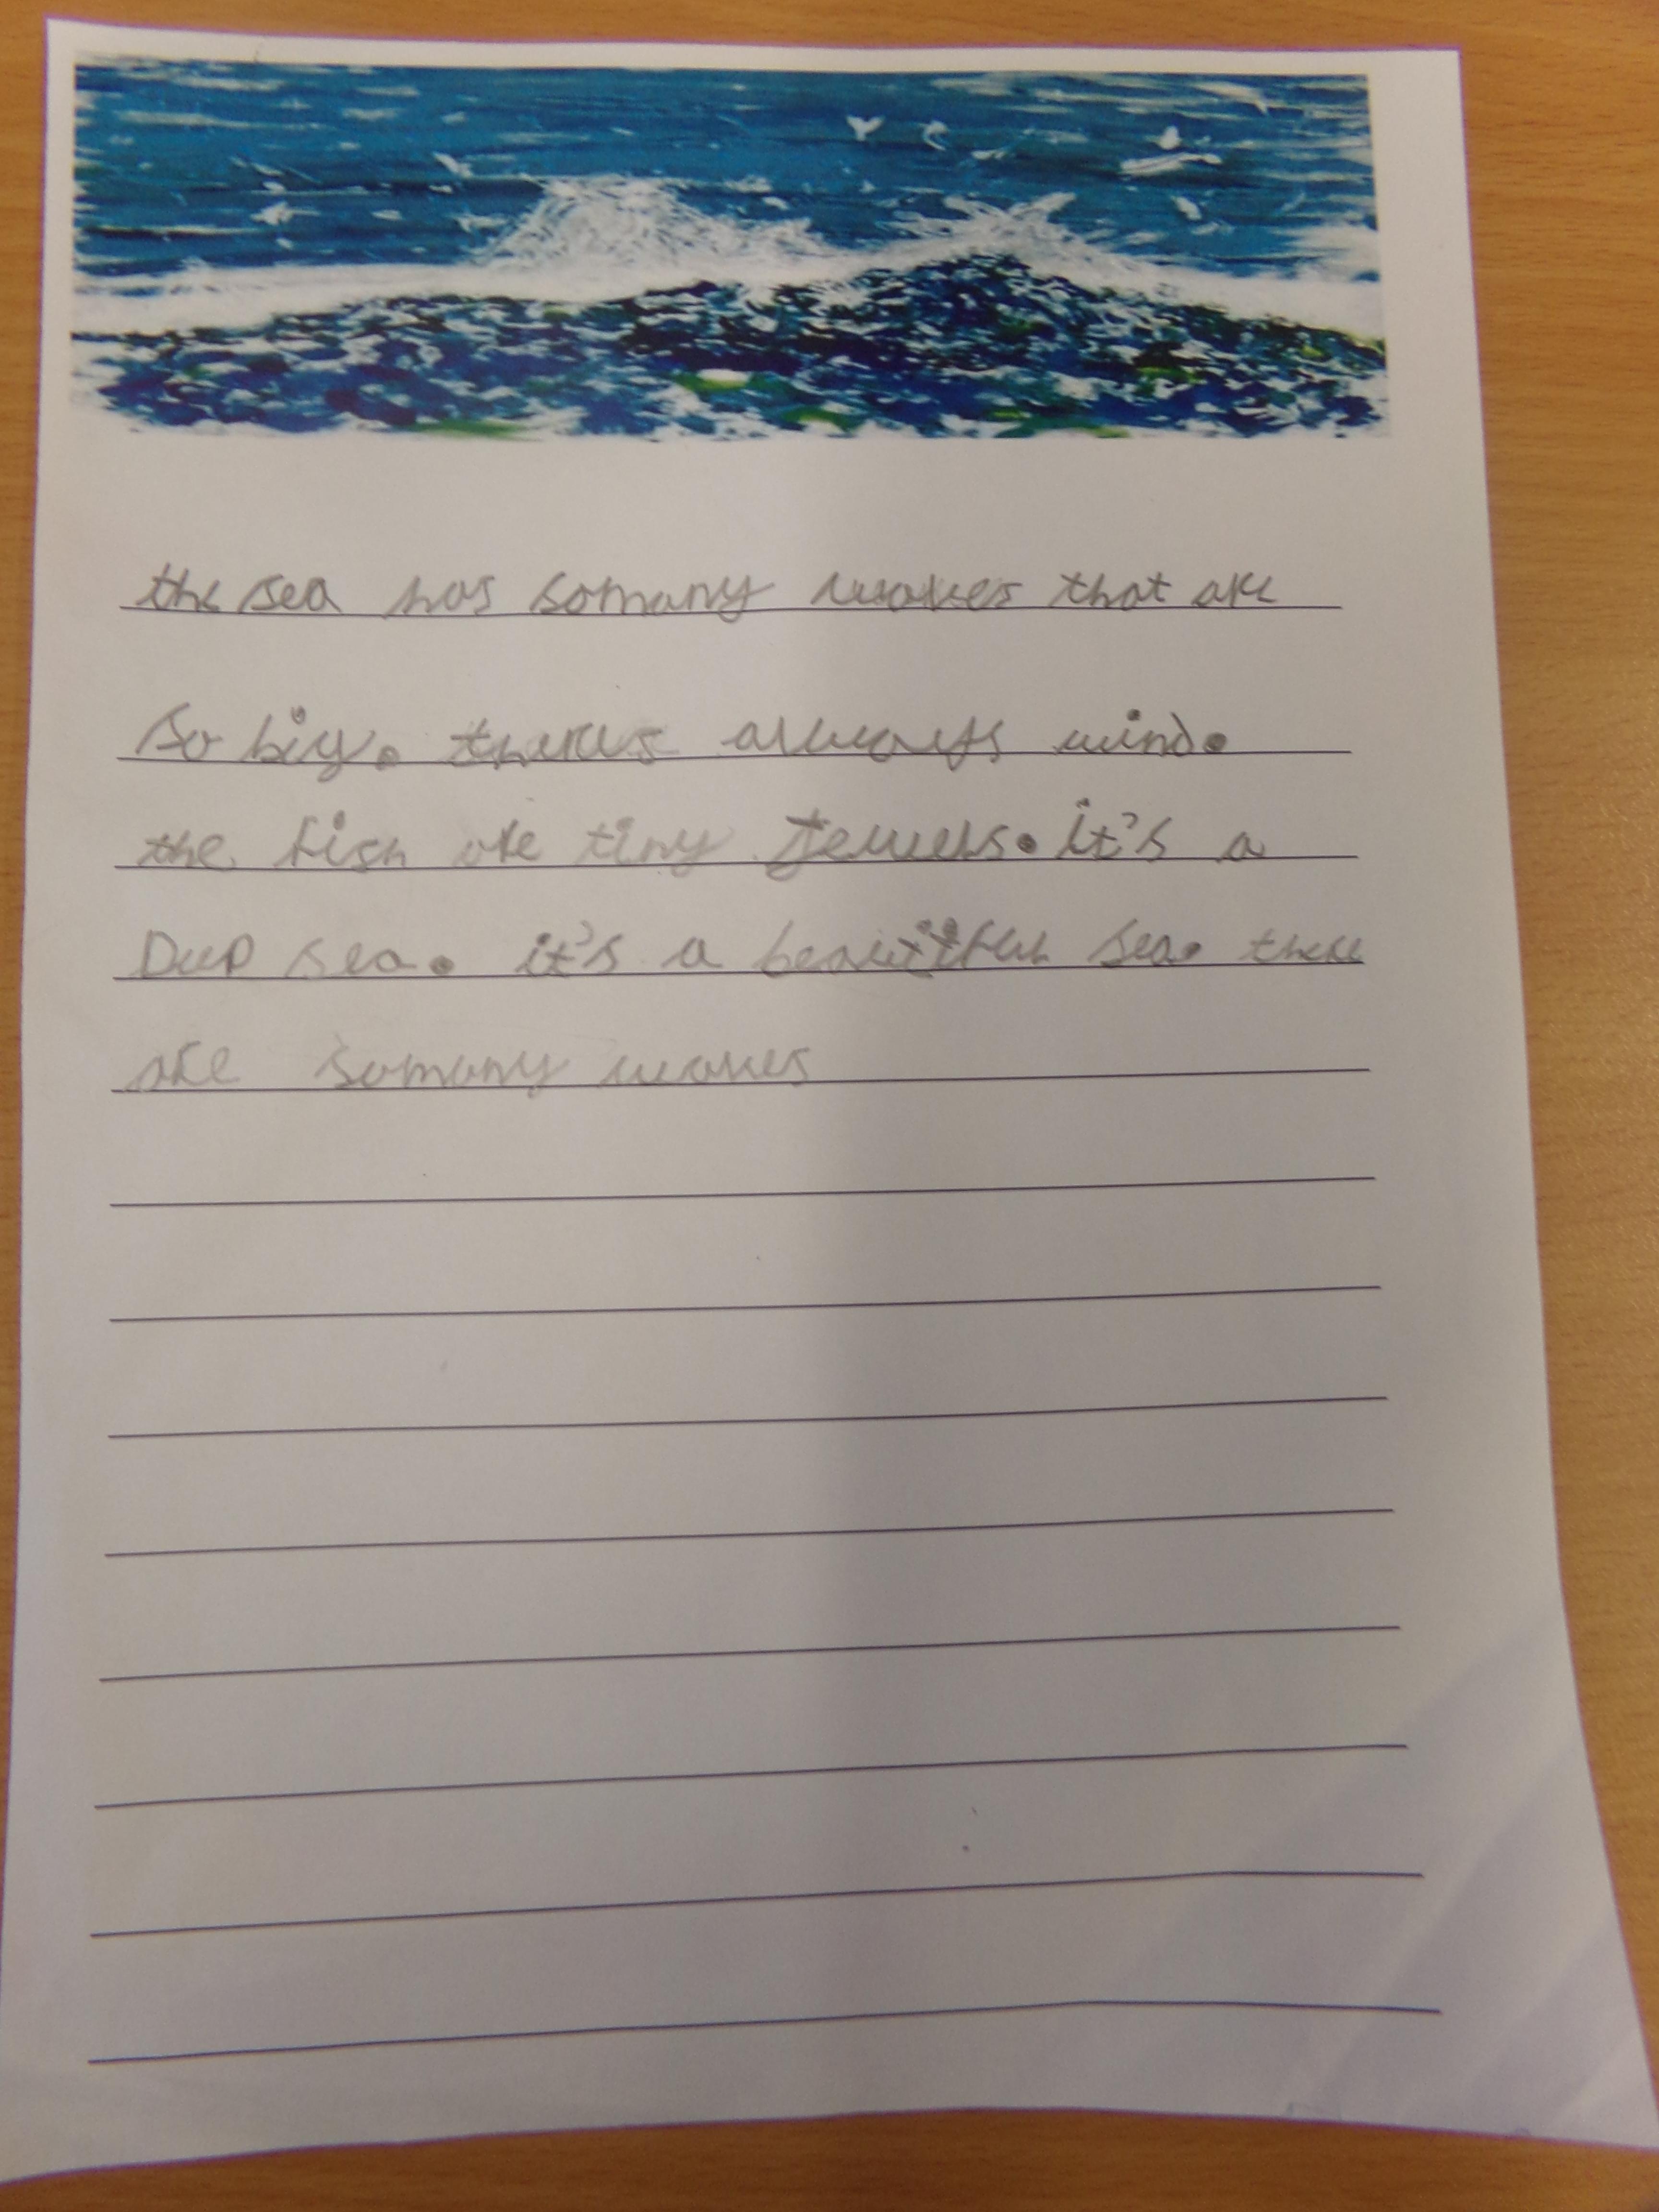 the sea has somany waves that are
so big. theres always wind.
the fish are tiny Jewels. it's a
Deep sea. it's a beautiful sea. there
are somany waves